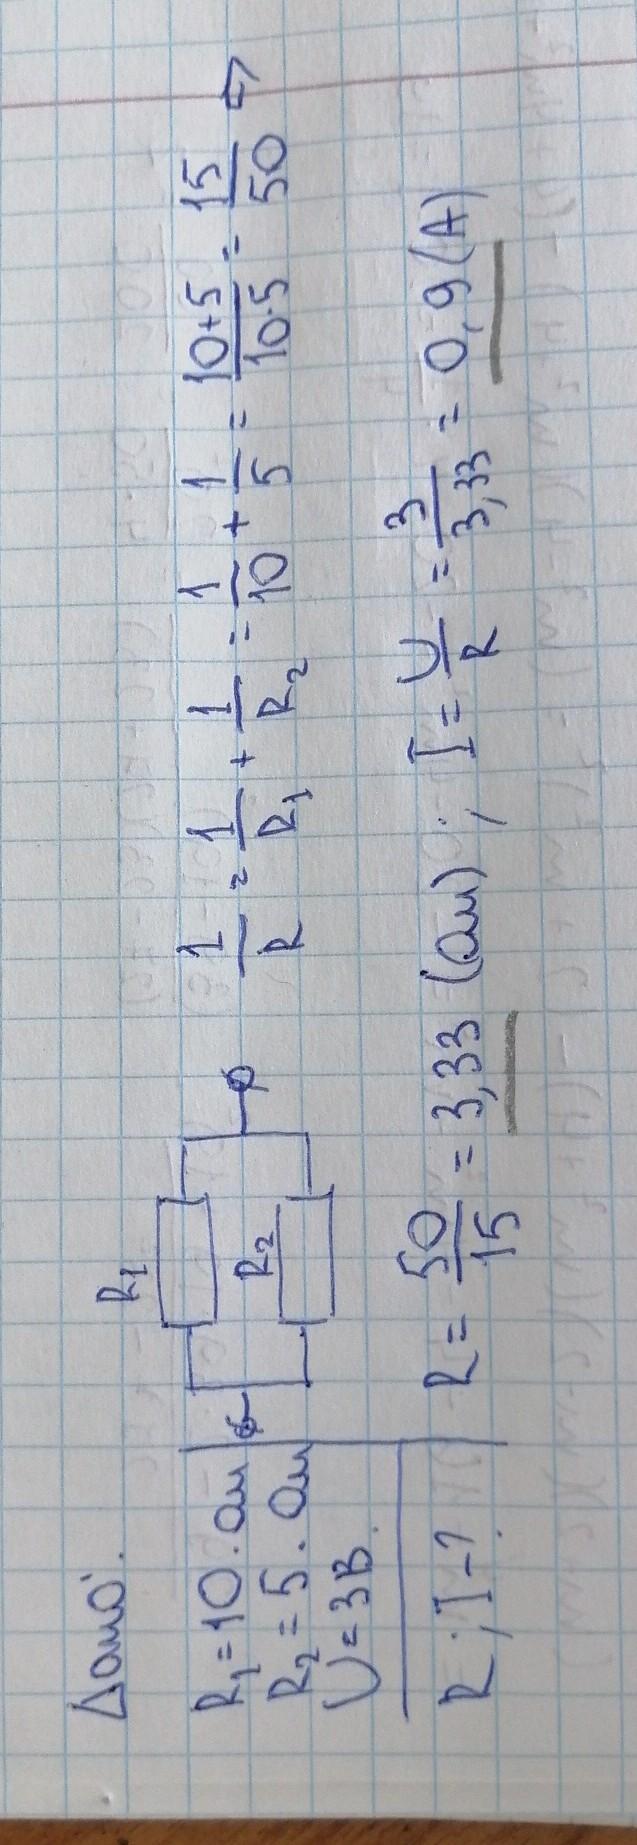 Дано:
R₁=10. ом
R₂=5. ом
U=3В.
R; I-?
R₁
R₂
1/R = 1/R₁ + 1/R₂ = 1/10 + 1/5 = (10+5)/(10·5) = 15/50 ⇒
R = 50/15 = 3,33 (ом) ; I = U/R = 3/3,33 = 0,9 (А)